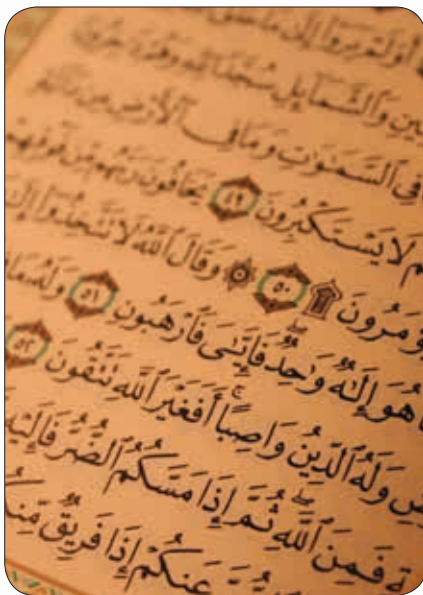 أَوَلَمْ يَرَوْا۟ إِلَىٰ مَا خَلَقَ
وَٱلشَّمَآئِلِ سُجَّدًا لِّلَّهِ وَهُمْ دَٰخِرُونَ
فِى ٱلسَّمَٰوَٰتِ وَمَا فِى ٱلْأَرْضِ مِن دَآبَّةٍ
لَا يَسْتَكْبِرُونَ ۝٤٩ يَخَافُونَ رَبَّهُم مِّن فَوْقِهِمْ
يُؤْمَرُونَ ۩ ۝٥٠ ۞ وَقَالَ ٱللَّهُ لَا تَتَّخِذُوٓا۟ إِلَٰ
هُوَ إِلَٰهٌ وَٰحِدٌ ۖ فَإِيَّٰىَ فَٱرْهَبُونِ ۝٥١ وَلَهُۥ مَا
ضِ وَلَهُ ٱلدِّينُ وَاصِبًا ۚ أَفَغَيْرَ ٱللَّهِ تَتَّقُونَ ۝٥٢
ةٍ فَمِنَ ٱللَّهِ ۖ ثُمَّ إِذَا مَسَّكُمُ ٱلضُّرُّ فَإِلَيْهِ
عَنكُمْ إِذَا فَرِيقٌ مِّنكُ